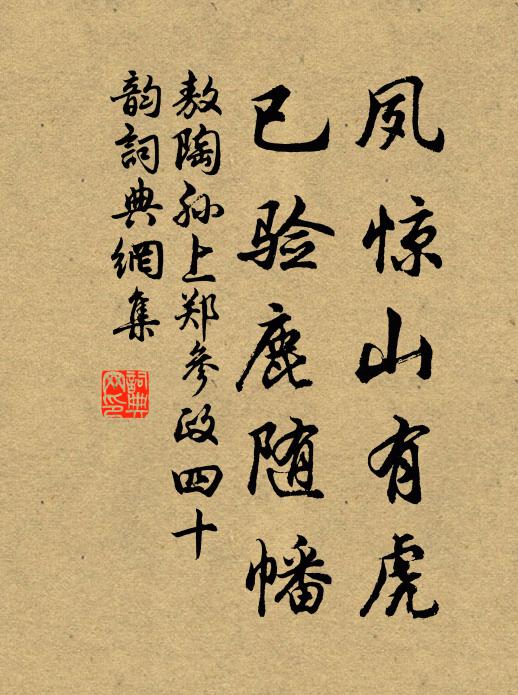 夙惊山有虎
已验鹿随幡
敖陶孙上郑参政四十
韵詞典網集
詞典
网印